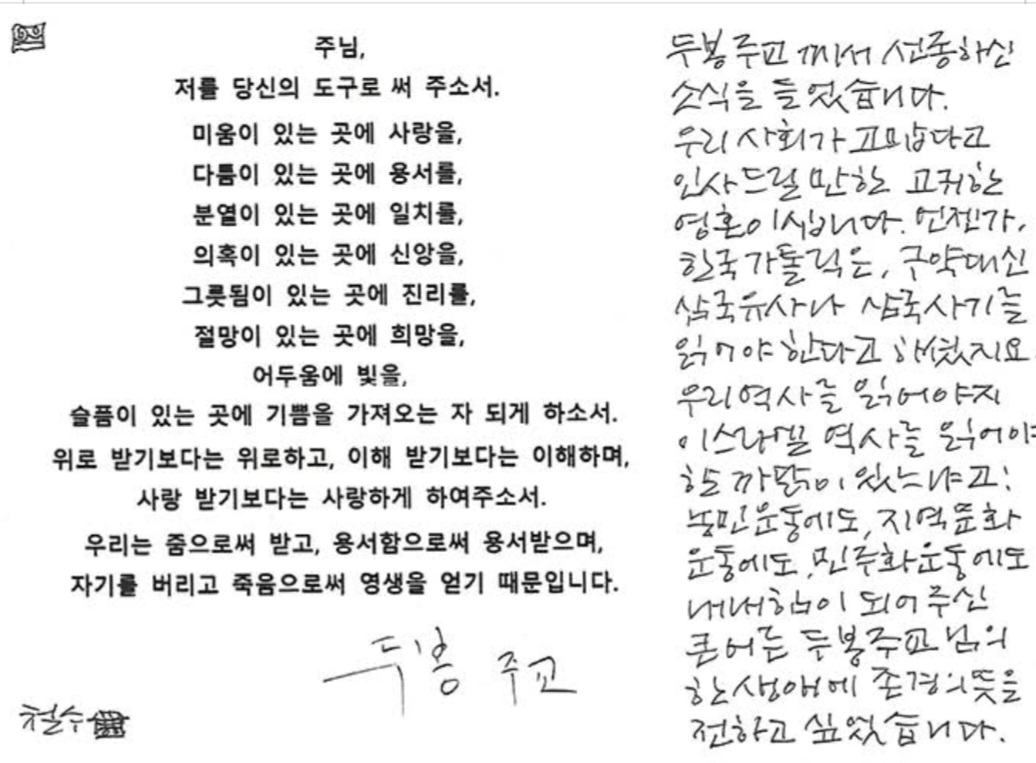 주님,
저를 당신의 도구로 써 주소서.
미움이 있는 곳에 사랑을,
다툼이 있는 곳에 용서를,
분열이 있는 곳에 일치를,
의혹이 있는 곳에 신앙을,
그릇됨이 있는 곳에 진리를,
절망이 있는 곳에 희망을,
어두움에 빛을,
슬픔이 있는 곳에 기쁨을 가져오는 자 되게 하소서.
위로 받기보다는 위로하고, 이해 받기보다는 이해하며,
사랑 받기보다는 사랑하게 하여주소서.
우리는 줌으로써 받고, 용서함으로써 용서받으며,
자기를 버리고 죽음으로써 영생을 얻기 때문입니다.
두봉 주교
철수
두봉 주교께서 선종하신
소식을 들었습니다.
우리 사회가 고맙다고
인사드릴 만한 고귀한
영혼이십니다. 언젠가,
한국 가톨릭은, 구약대신
삼국유사나 삼국사기를
읽어야 한다고 하셨지요.
우리역사를 읽어야지
이스라엘 역사를 읽어야
할 까닭이 있느냐고!
농민운동에도, 지역문화
운동에도, 민주화운동에도
내내 힘이 되어 주신
큰어른 두봉주교님의
한생애에 존경의 뜻을
전하고 싶었습니다.